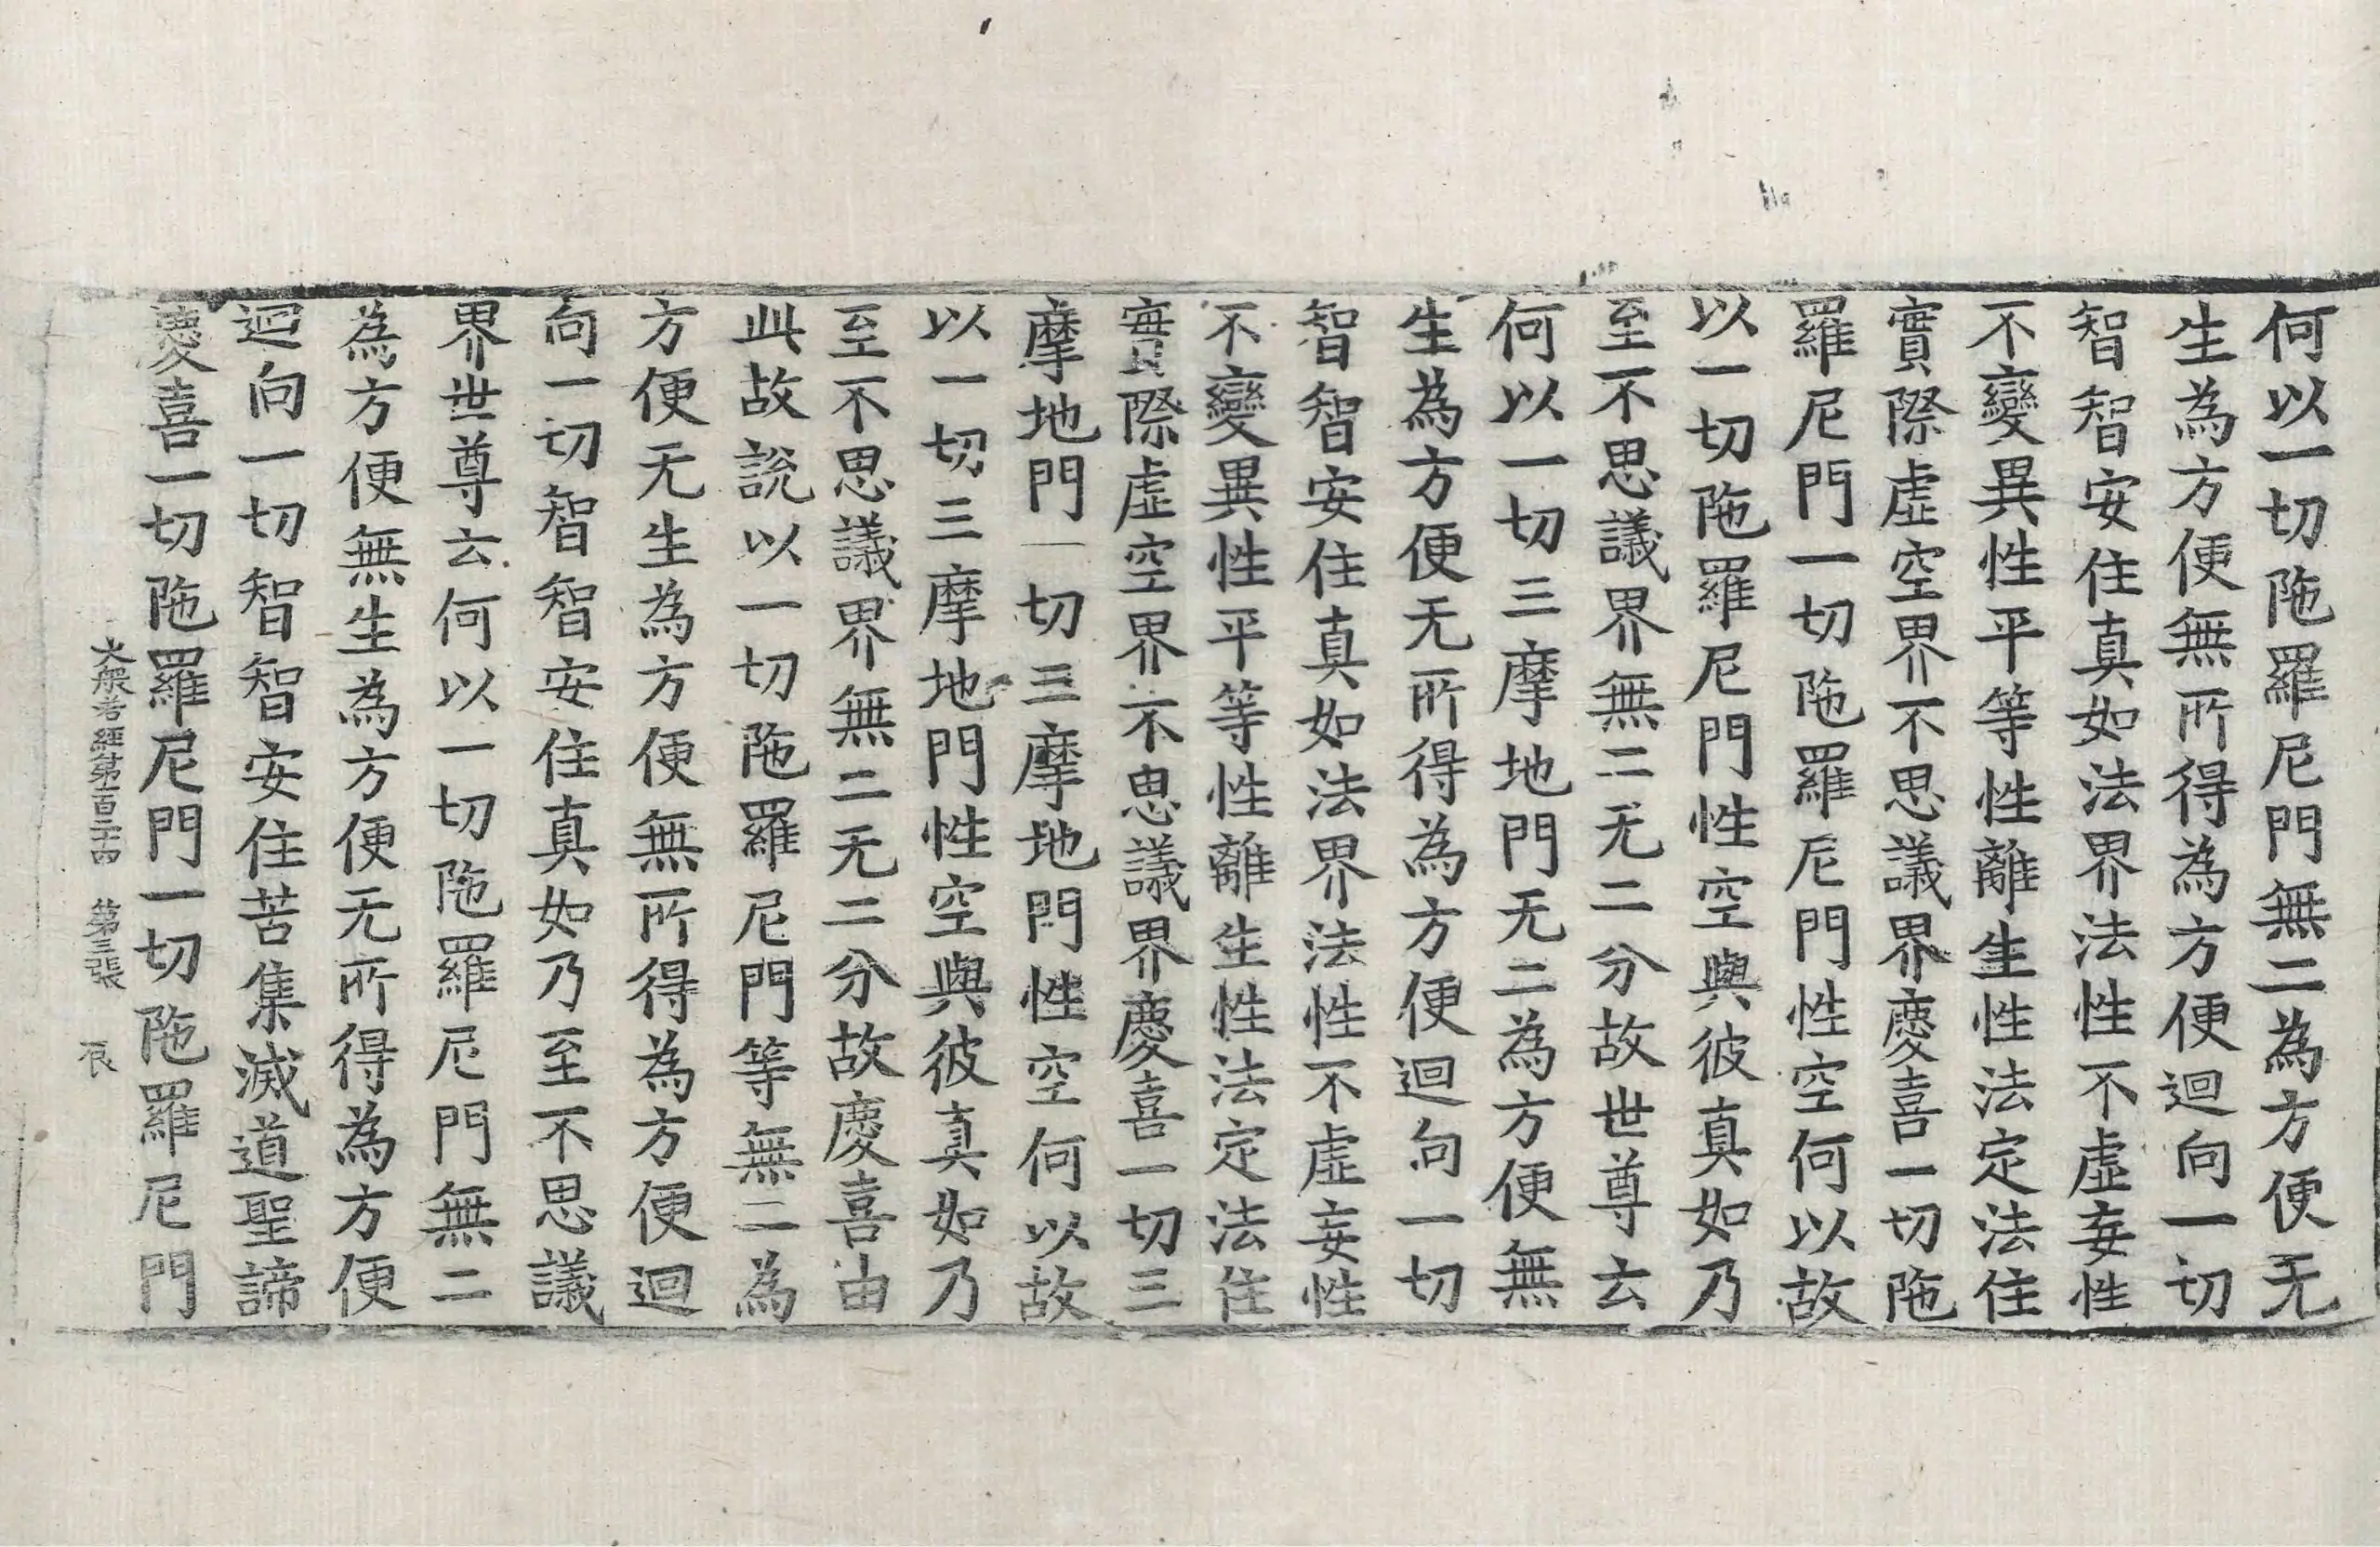 何以一切陁羅尼門無二為方便无
生為方便無所得為方便迴向一切
智智安住真如法界法性不虛妄性
不變異性平等性離生性法定法住
實際虛空界不思議界慶喜一切陁
羅尼門一切陁羅尼門性空何以故
以一切陁羅尼門性空與彼真如乃
至不思議界無二无二分故世尊云
何以一切三摩地門无二為方便無
生為方便无所得為方便迴向一切
智智安住真如法界法性不虛妄性
不變異性平等性離生性法定法住
實際虛空界不思議界慶喜一切三
摩地門一切三摩地門性空何以故
以一切三摩地門性空與彼真如乃
至不思議界無二无二分故慶喜由
此故說以一切陁羅尼門等無二為
方便无生為方便無所得為方便迴
向一切智智安住真如乃至不思議
界世尊云何以一切陁羅尼門無二
為方便無生為方便无所得為方便
迴向一切智智安住苦集滅道聖諦
慶喜一切陁羅尼門一切陁羅尼門
大般若經第一百二十四 第三張 辰